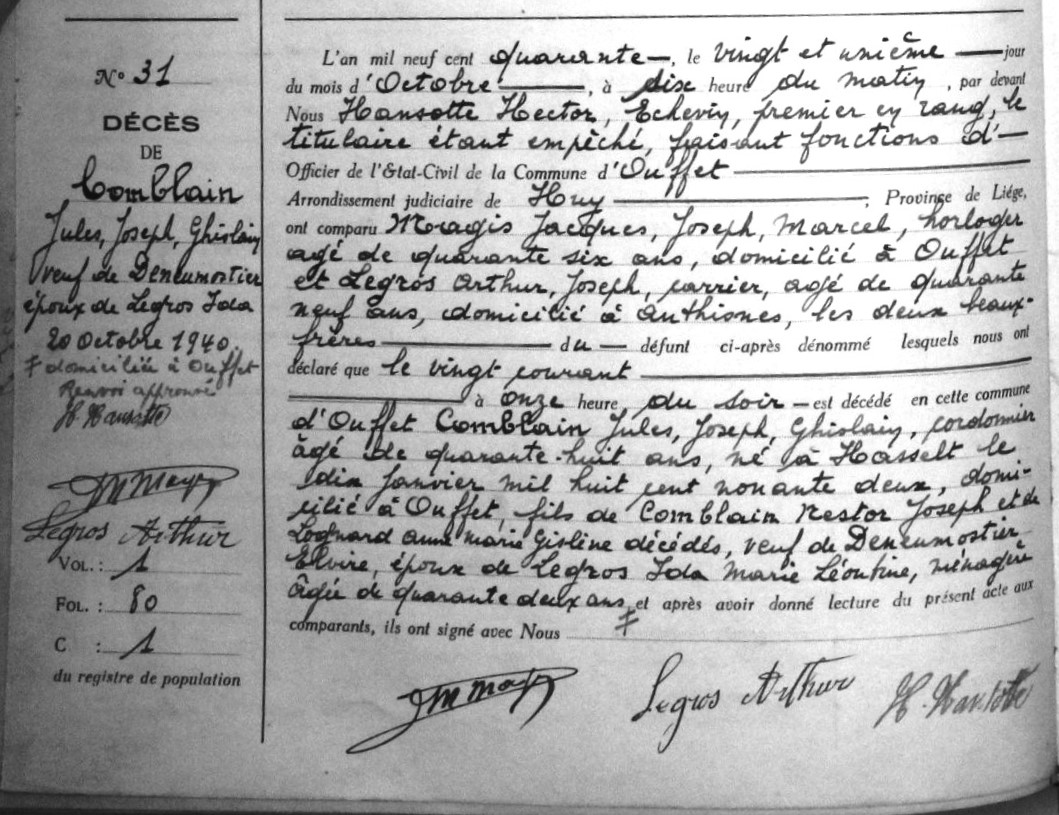 N° 31
DÉCÈS
DE
Comblain
Jules, Joseph, Ghislain
veuf de Deneumostier
époux de Legros Ida
20 Octobre 1940.
⨍ domiciliée à Ouffet
Renvoi approuvé
H. Hansotte
Legros Arthur
VOL. : 1
FOL. : 80
C : 1
du registre de population
L'an mil neuf cent quarante —, le vingt et unième — jour
du mois d'Octobre —, à dix heure du matin, par devant
Nous Hansotte Hector, Echevin, premier en rang, le
titulaire étant empêché, faisant fonctions d'—
Officier de l'Etat-Civil de la Commune d'Ouffet —
Arrondissement judiciaire de Huy —, Province de Liége,
ont comparu Magis Jacques, Joseph, Marcel, horloger
agé de quarante six ans, domicilié à Ouffet
et Legros Arthur, Joseph, carrier, agé de quarante
neuf ans, domicilié à Anthisnes, les deux beaux-
frères — du — défunt ci-après dénommé lesquels nous ont
déclaré que le vingt courant —
— à onze heure du soir — est décédé en cette commune
d'Ouffet Comblain Jules, Joseph, Ghislain, cordonnier
âgé de quarante-huit ans, né à Hasselt le
dix janvier mil huit cent nonante deux, domi-
cilié à Ouffet, fils de Comblain Nestor Joseph et de
Lognard anne marie Gisline décédés, veuf de Deneumostier
Elvire, époux de Legros Ida Marie Léontine, ménagère
âgée de quarante deux ans, et après avoir donné lecture du présent acte aux
comparants, ils ont signé avec Nous — ⨍
Legros Arthur
H. Hansotte